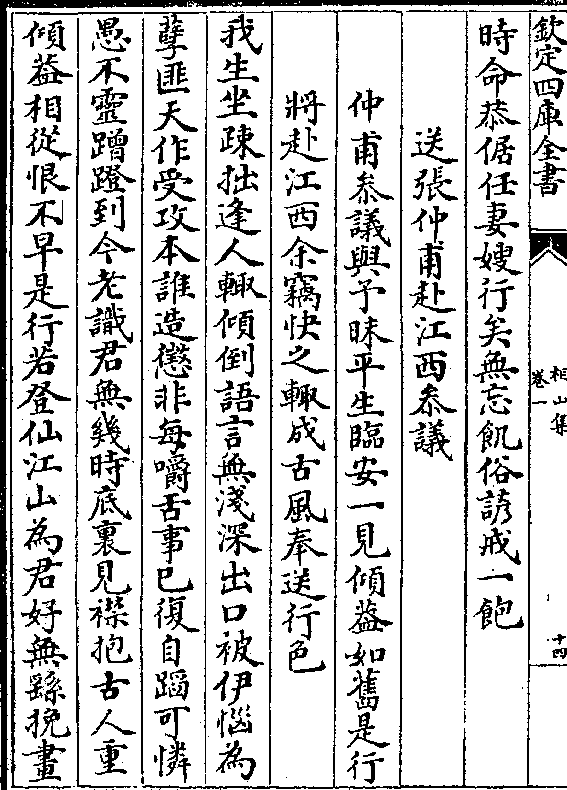 欽定四庫全書
相山集
卷一
十四
時命恭倨任妻嫂行矣無忘飢俗諺戒一飽
送張仲甫赴江西叅議
仲甫叅議與予昧平生臨安一見傾葢如舊是行
將赴江西余竊快之輙成古風奉送行色
我生坐疎拙逢人輙傾倒語言無淺深出口被伊惱為
孽匪天作受攻本誰造懲非每嚼舌事已復自蹈可憐
愚不靈蹭蹬到今老識君無幾時底裏見襟抱古人重
傾葢相從恨不早是行若登仙江山為君好無繇挽畫